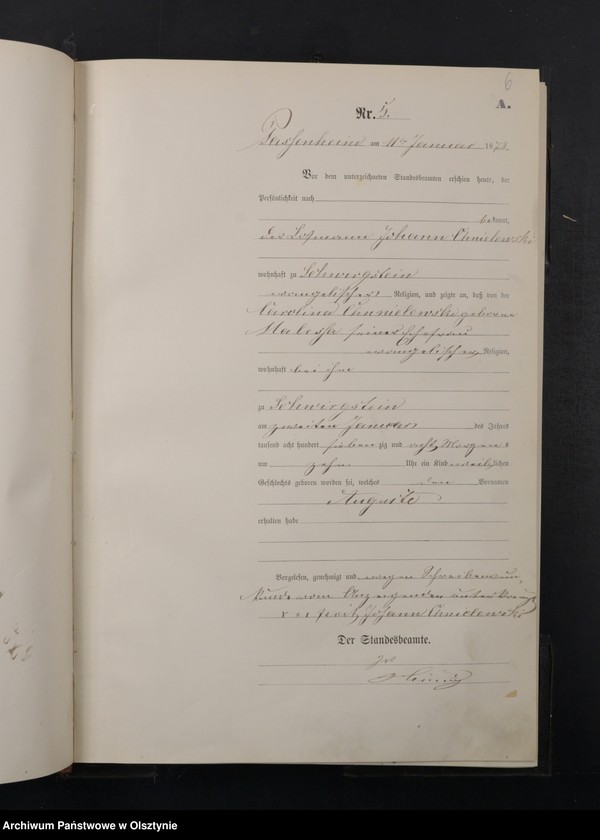 6
A.
Nr. 5.
Passenheim am 11ten Januar 1878.
Vor dem unterzeichneten Standesbeamten erschien heute, der
Persönlichkeit nach
bekannt,
der Losmann Johann Chmielewski
wohnhaft zu Schwirgstein
evangelischer Religion, und zeigte an, daß von der
Carolina Chmielewski geborene
seiner Ehefrau
evangelischer Religion,
wohnhaft bei ihm
zu Schwirgstein
am zweiten Januar des Jahres
tausend acht hundert siebenzig und acht Morgens
um zehn Uhr ein Kind weiblichen
Geschlechts geboren worden sei, welches den Vornamen
Auguste
erhalten habe
Vorgelesen, genehmigt und wegen Schreibensun
kunde vom Anzeigenden unterkreuzt
x x x Johann Chmielewski
Der Standesbeamte.
Archiwum Państwowe w Olsztynie